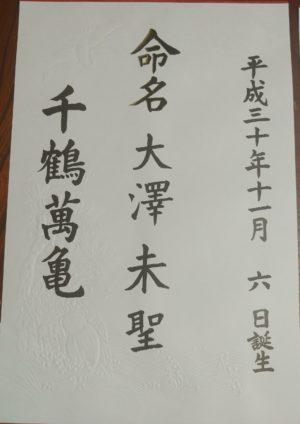 平成三十年十一月 六 日誕生
命名 大澤未聖
千鶴萬亀